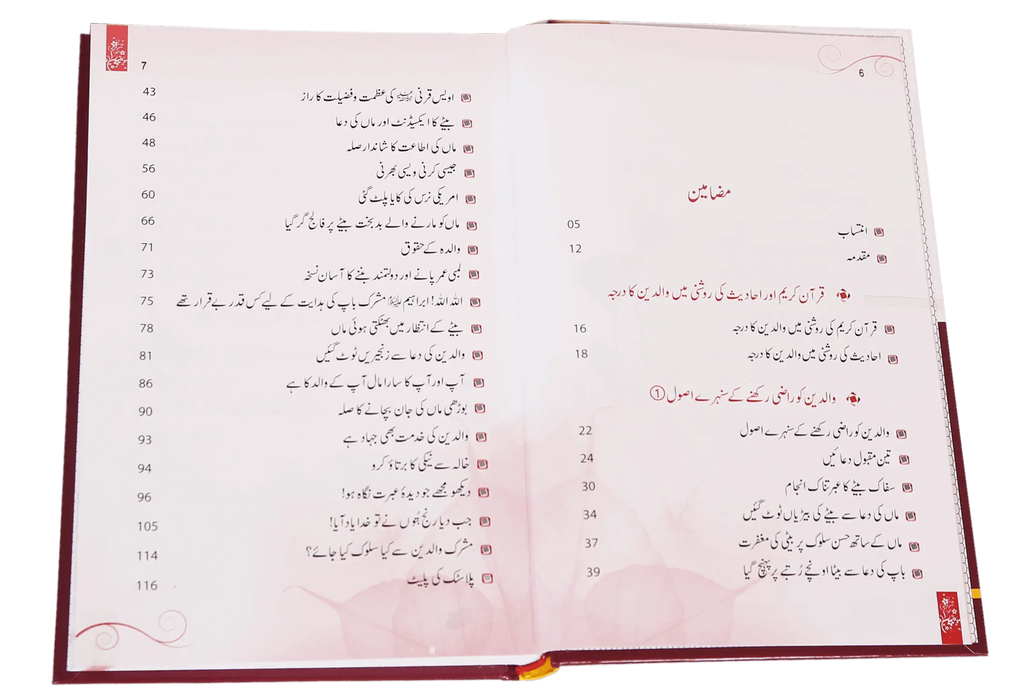 6
مضامین
انتساب 05
مقدمہ 12
قرآن کریم اور احادیث کی روشنی میں والدین کا درجہ
قرآن کریم کی روشنی میں والدین کا درجہ 16
احادیث کی روشنی میں والدین کا درجہ 18
والدین کو راضی رکھنے کے سنہرے اصول ①
والدین کو راضی رکھنے کے سنہرے اصول 22
تین مقبول دعائیں 24
سفاک بیٹے کا عبرتناک انجام 30
ماں کی دعا سے بیٹے کی بیڑیاں ٹوٹ گئیں 34
ماں کے ساتھ حسن سلوک پر بیٹی کی مغفرت 37
باپ کی دعا سے بیٹا اونچے رُتبے پر پہنچ گیا 39
7
اویس قرنی کی عظمت و فضیلت کا راز 43
بیٹے کا ایکسیڈنٹ اور ماں کی دعا 46
ماں کی اطاعت کا شاندار صلہ 48
جیسی کرنی ویسی بھرنی 56
امریکی نرس کی کایا پلٹ گئی 60
ماں کو مارنے والے بدبخت بیٹے پر فالج گر گیا 66
والدہ کے حقوق 71
لمبی عمر پانے اور دولتمند بننے کا آسان نسخہ 73
اللہ اللہ! ابراہیم علیہ السلام مشرک باپ کی ہدایت کے لیے کس قدر بے قرار تھے 75
بیٹے کے انتظار میں بھٹکتی ہوئی ماں 78
والدین کی دعا سے زنجیریں ٹوٹ گئیں 81
آپ اور آپ کا سارا مال آپ کے والد کا ہے 86
بوڑھی ماں کی جان بچانے کا صلہ 90
والدین کی خدمت بھی جہاد ہے 93
خالہ سے نیکی کا برتاؤ کرو 94
دیکھو مجھے جو دیدۂ عبرت نگاہ ہو! 96
جب دیا رنج بتوں نے تو خدا یاد آیا! 105
مشرک والدین سے کیا سلوک کیا جائے؟ 114
پلاسٹک کی پلیٹ 116